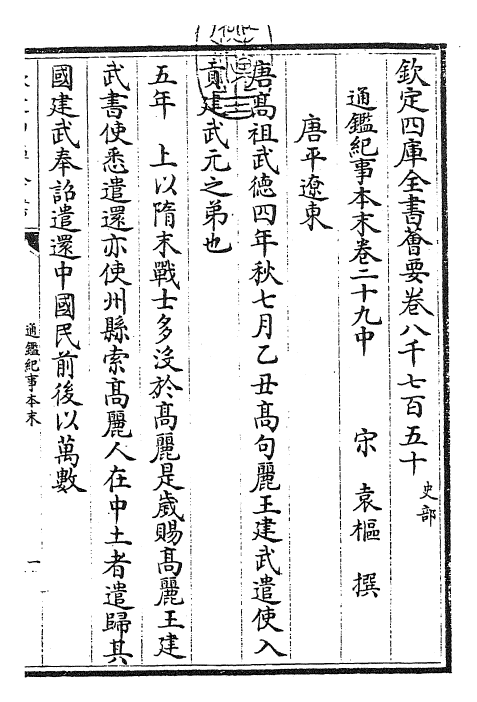 欽定四庫全書薈要卷八千七百五十 史部
通鑑紀事本末卷二十九中
宋 袁樞 撰
唐平遼東
唐髙祖武徳四年秋七月乙丑髙句麗王建武遣使入
貢建武元之弟也
五年 上以隋末戰士多没於髙麗是歲賜髙麗王建
武書使悉遣還亦使州縣索髙麗人在中土者遣歸其
國建武奉詔遣還中國民前後以萬數
通鑑紀事本末
一